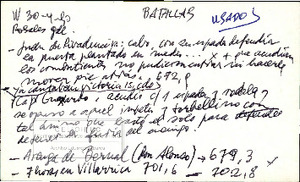 W 30-4-s BATALLAS USADOS
Rosales gel.
- Juan de Rivadeneira: cabo, con su espada defendía
la puerta plantado en medio... x + que acudían
los combatientes no pudieron entrar sin hacerle
mover pie atrás, 692,9
Ya cantaban victoria 15, cdo
Cap. Guajardo, acudió c/ 1 espada y rodela y
se opuso a aquel ímpetu y torbellino con
tal ánimo que bastó el solo para
detener la furia del enemigo.
- Arauz de Bernal (Don Alonso) → 679,3
- Flores en Villarrica 701,6 — 702,8